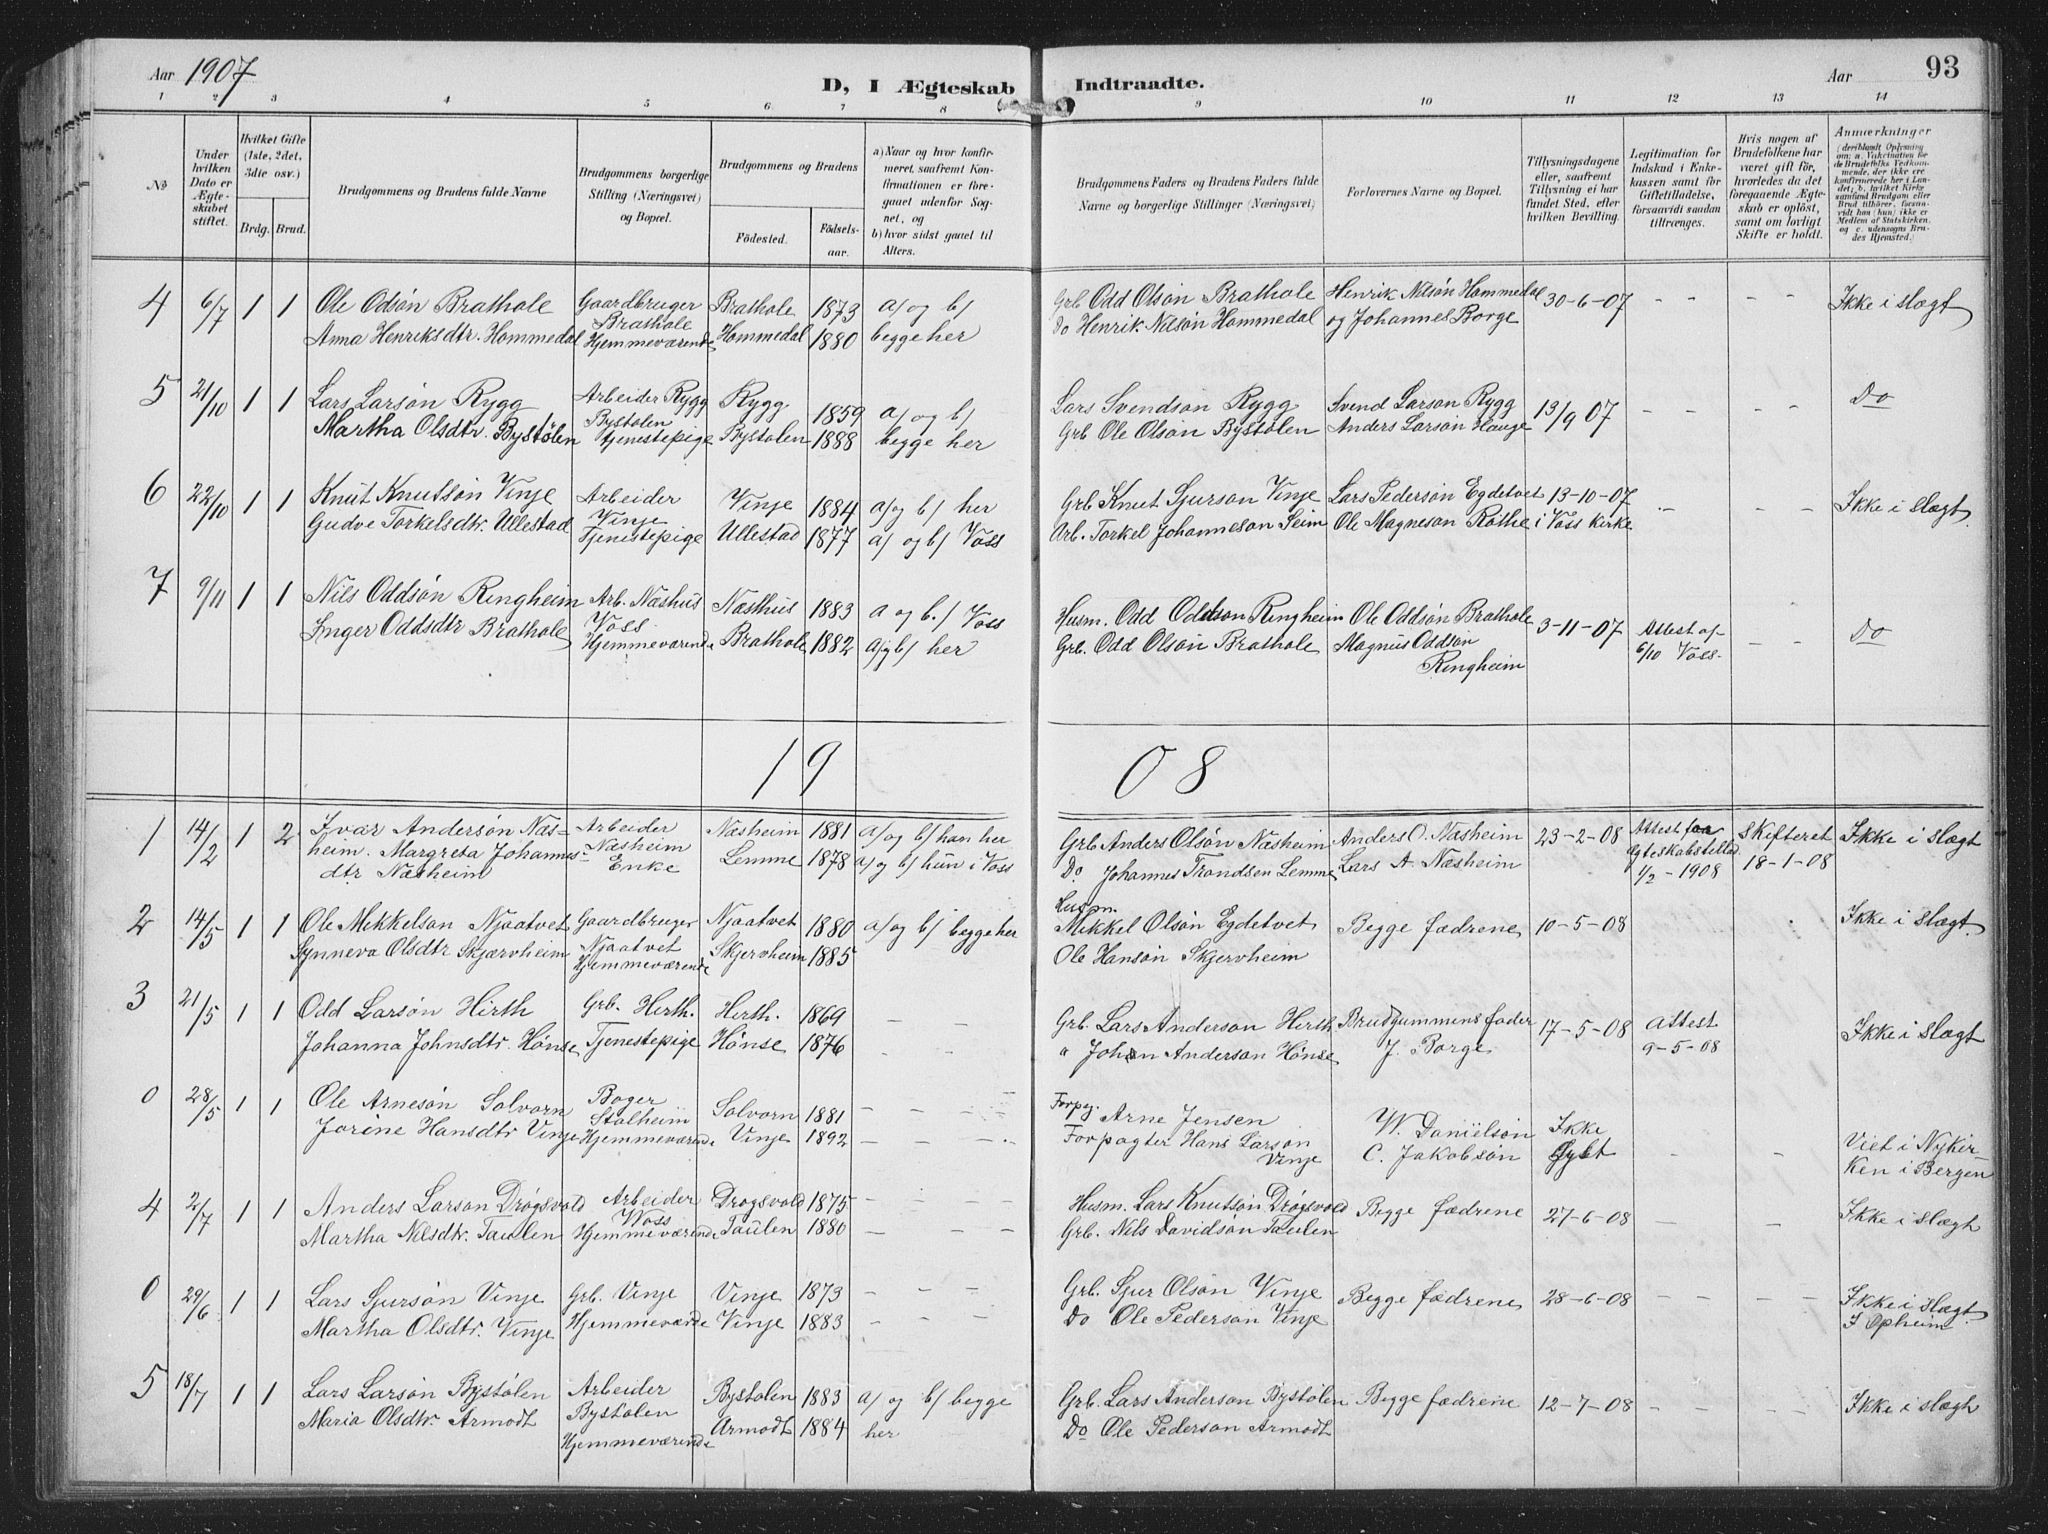 Aar 1907
D, I Ægteskab Indtraadte.
Aar 93
1 2 3 4 5 6 7 8 9 10 11 12 13 14
No
Under hvilken Dato er Ægteskabet stiftet.
Hvilket Gifte (1ste, 2det, 3die osv.)
Brdg. Brud.
Brudgommens og Brudens fulde Navne
Brudgommens borgerlige Stilling (Næringsvei) og Bopæl.
Brudgommens og Brudens
Födested. Födselsaar.
a) Naar og hvor konfirmeret, saafremt Konfirmationen er foregaaet udenfor Sognet, og
b) hvor sidst gaaet til Alters.
Brudgommens Faders og Brudens Faders fulde Navne og borgerlige Stillinger (Næringsvei)
Forlovernes Navne og Bopæl.
Tillysningsdagene eller, saafremt Tillysning ei har fundet Sted, efter hvilken Bevilling.
Legitimation for Indskud i Enkekassen samt for Giftetilladelse, forsaavidt saadan tiltrænges.
Hvis nogen af Brudefolkene har været gift för, hvorledes da det foregaaende Ægteskab er oplöst, samt om lovligt Skifte er holdt.
Anmerkninger
(deriblandt Oplysning om: a. Vakcination for de Brudefolks Vedkommende, der ikke ere konfirmerede her i Landet; b. hvilket Kirkesamfund Brudgom eller Brud tilhörer, forsaavidt han (hun) ikke er Medlem af Statskirken, og c. udensogns Brudes Hjemsted.)
4 6/7 1 1 Ole Odsøn Brathole Gaardbruger Brathole Brathole 1873 a/ og b/ Grb Odd Olsøn Brathole Henrik Nilsøn Hommedal 30-6-07 - - - - Ikke i slægt
Anna Henriksdtr. Hommedal Hjemmeværende Hommedal 1880 begge her Do Henrik Nilsøn Hommedal og Johannes Borge
5 21/10 1 1 Lars Larsøn Rygg Arbeider Rygg Rygg 1859 a/ og b/ Lars Svendsøn Rygg Svend Larson Rygg 13/9 07 - - - - Do
Martha Olsdtr. Bystølen Bystolen Tjenestepige Bystolen 1888 begge her Grb Ole Olson Bystølen Anders Larsøn Hauge
6 22/10 1 1 Knut Knutsøn Vinje Arbeider Vinje Vinje 1884 a/ og b/ her Grb Knut Sjurson Vinje Lars Pedersøn Egdetvet 13-10-07 - - - Ikke i slægt
Gudve Torkelsdtr. Ullestad Tjenestepige Ullestad 1877 a/ og b/ Voss Arb. Torkel Johanneson Seim Ole Magneson Røthe i Voss Kirke
7 9/11 1 1 Nils Oddsøn Ringheim Arb. Næshus Voss Næsthus 1883 a og b./ Voss Husm. Odd Oddson Ringheim Ole Oddsøn Brathole 3-11-07 Attest af 6/10 Voss. - - Do
Inger Oddsdtr Brathole Hjemmeværende Brathole 1882 a/g b/ her Grb. Odd Olsøn Brathole Magnus Oddsøn Ringheim
19 08
1 14/2 1 2 Ivar Andersøn Næsheim. Arbeider Næsheim Næsheim 1881 a/ og b/ han her Grb Anders Olsøn Næsheim Anders O. Næsheim 23-2-08 Attest for Egteskabstillad 1/2-1908 Skifteret 18-1-08 Ikke i slægt
Margreta Johannesdtr Næsheim Enke Lemme 1878 a/ og b/ hun i Voss Do Johannes Trondsen Lemme Lars A. Næsheim
2 14/5 1 1 Ole Mikkelson Njaatvet Gaardbruger Njaatvet Njaatvet 1880 a/ og b/ begge her Husm. Mikkel Olsøn Egdetvet Begge fædrene 10-5-08 Ikke i slægt
Synneva Olsdtr Skjærvheim Hjemmeværende Skjervheim 1885 Ole Hansøn Skjervheim
3 21/5 1 1 Odd Larsøn Hirth Grb. Hirth. Hirth. 1869 - - Grb. Lars Anderson Hirth Brudgummens fader 17-5-08 Attest 9-5-08 Ikke i slægt
Johanna Johnsdtr. Hønse Tjenestepige Hønse 1876 - - " John Anderson Hønse J. Borge
0 28/5 1 1 Ole Arnesøn Solvorn Bager Stalheim Solvorn 1881 - - - Forpg. Arne Jensen W. Danielsøn Ikke Lyst - - Viet i Nykirken i Bergen
Jorene Hansdtr Vinje Hjemmeværende Vinje 1892 - - - Forpagter Hans Larsøn Vinje C. Jakobsøn
4 2/7 1 1 Anders Larson Drøgsvold Arbeider Woss Drogsvold 1875 - - - Husm. Lars Knutsøn Drøgsvold Begge fædrene 27-6-08 - - Ikke i slægt
Martha Nilsdtr. Taulen Hjemmeværende Taulen 1880 - - - Grb. Nils Davidsøn Taulen
0 29/6 1 1 Lars Sjursøn Vinje Grb. Vinje Vinje 1873 - - - Grb. Sjur Olsøn Vinje Begge fædrene 28-6-08 - - - - Ikke i slægt. I Opheim
Martha Olsdtr. Vinje Hjemmeværde Vinje 1883 - - Do Ole Pedersøn Vinje
5 18/7 1 1 Lars Larsøn Bystølen Arbeider Bystolen Bystolen 1883 a/ og b/ begge her Grb. Lars Anderson Bystølen Begge fædrene 12-7-08 - - - - Ikke i slægt
Maria Olsdtr. Armodt Hjemmeværende Armodt 1884 Do Ole Pederson Armodt